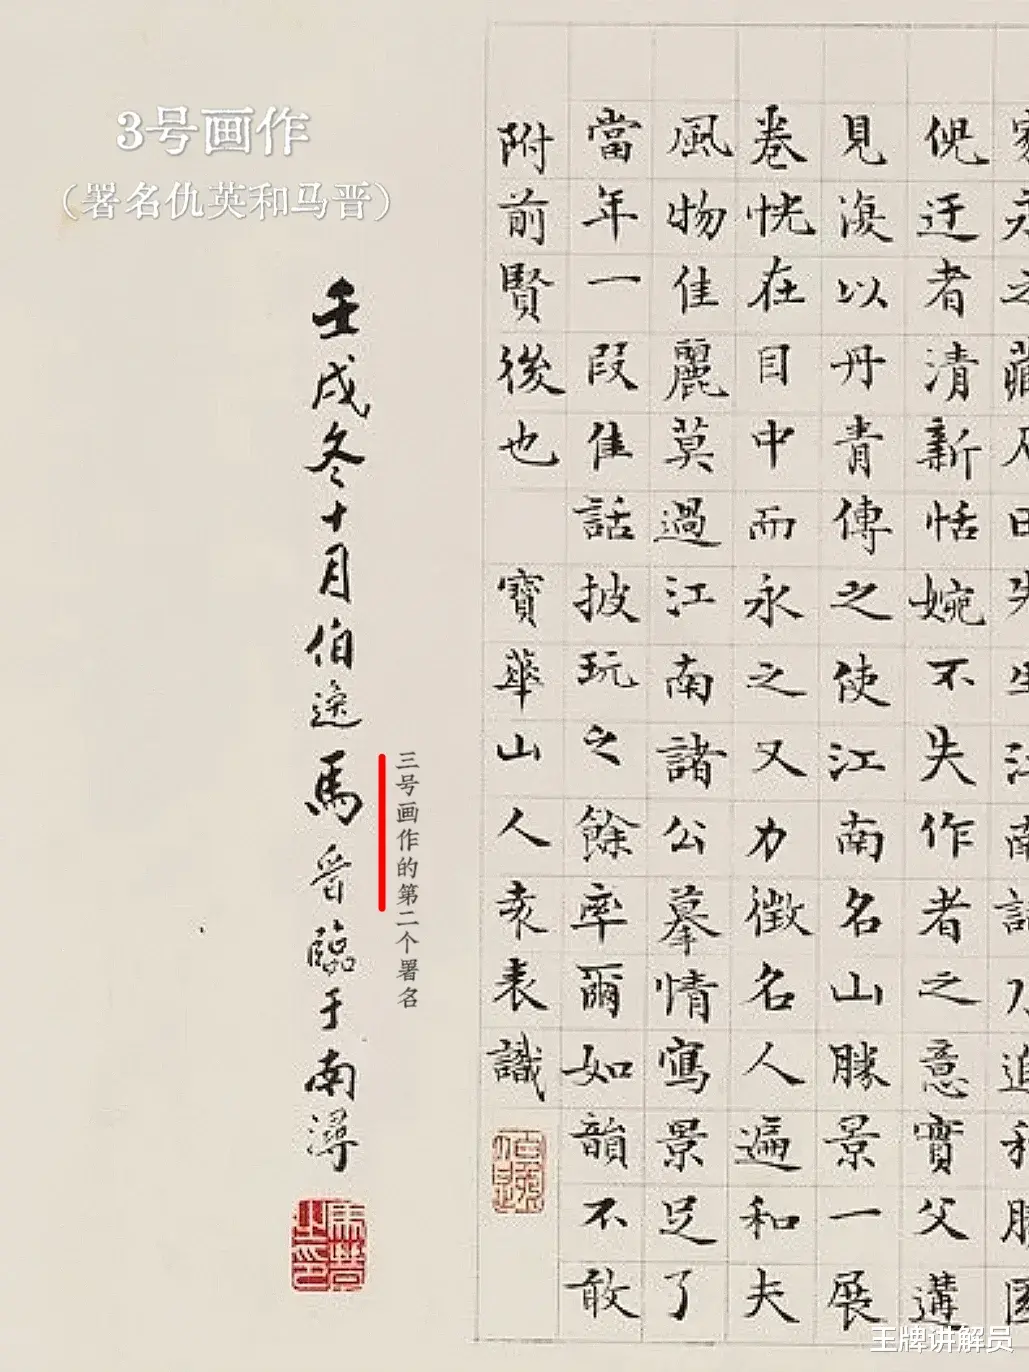 3号画作
（署名仇英和马晋）
倪迂者清新恬婉不失作者之意實父遘
見復以丹青傳之使江南名山勝景一展
卷恍在目中而永之又力徵名人遍和夫
風物佳麗莫過江南諸公摹情寫景足了
當年一段佳話披玩之餘率爾如韻不敢
附前賢後也 寶華山人袁表識
三号画作的第二个署名
壬戌冬十月伯逸馬晉臨于南潯
馬晉之印
王牌讲解员